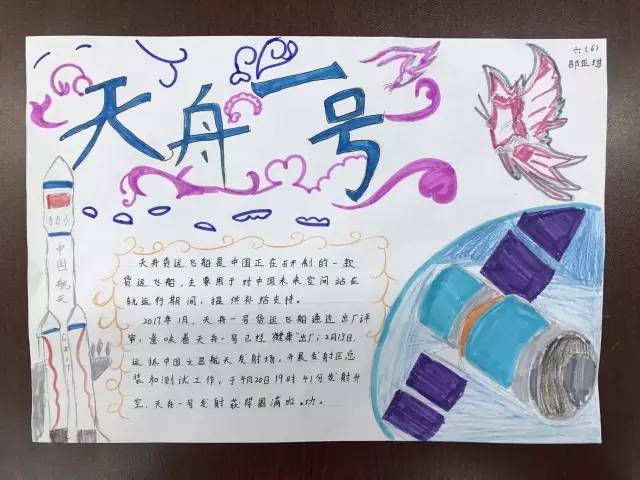 天舟一号
六(6)
邵亚琪
中国航天
CZ-7
天舟货运飞船是中国正在研制的一款
货运飞船，主要用于对中国未来空间站在
轨运行期间，提供补给支持。
2017年1月，天舟一号货运飞船通过出厂评
审，意味着天舟一号已经"健康"出厂；2月13日，
运抵中国文昌航天发射场，开展发射区总
装和测试工作，于4月20日19时41分发射升
空，天舟一号发射获得圆满成功。